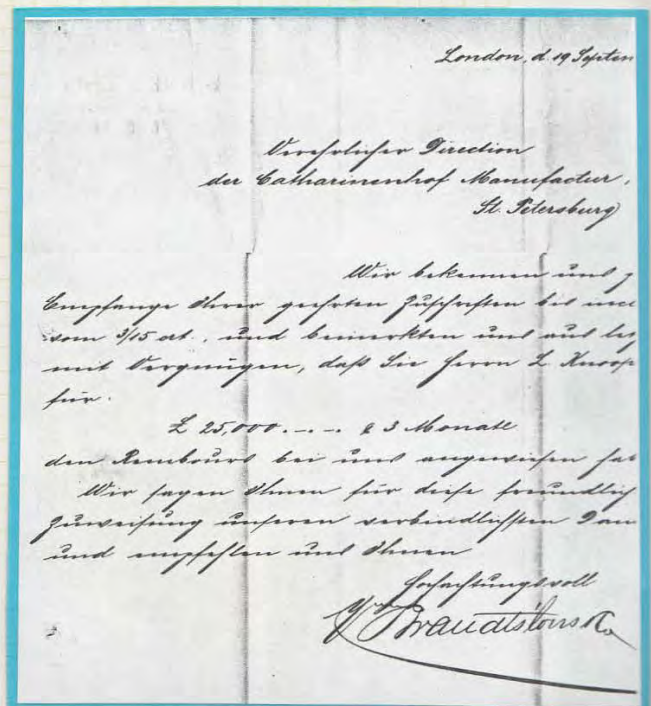 London, d. 19 Septem
Verehrlicher Direction
der Catharinenhof Manufactur,
St. Petersburg
Wir bekennen uns z
Empfange Ihrer geehrten Zuschriften bis incl
vom 3/15 ct., und bemerkten uns aus letz
mit Vergnügen, daß Sie Herrn L. Knoop
für.
£ 25,000.-.-. à 3 Monate
den Rembours bei uns angewiesen hab
Wir sagen Ihnen für diese freundlich
Zuweisung unseren verbindlichsten Dan
und empfehlen uns Ihnen
Hochachtungsvoll
Wm Brandt's Sons & Co